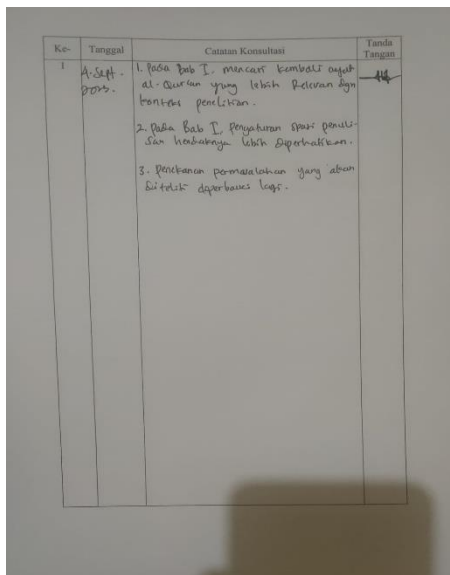 Ke- Tanggal Catatan Konsultasi Tanda Tangan
1 4. Sept. 2023. 1. Pada Bab I. mencari kembali ayat
al-Qur'an yang lebih Relevan dgn
konteks penelitian.
2. Pada Bab I, Pengaturan spasi penuli-
san hendaknya lebih diperhatikan.
3. Penekanan permasalahan yang akan
diteliti diperbarui lagi.